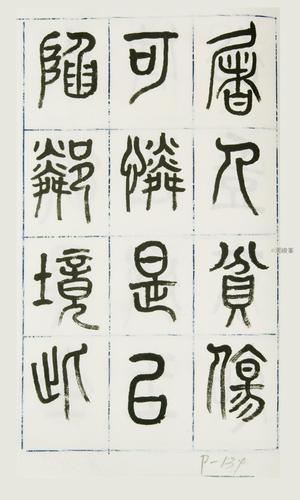 屠人貧傷
可憐是以
陷鄰境此
P-134